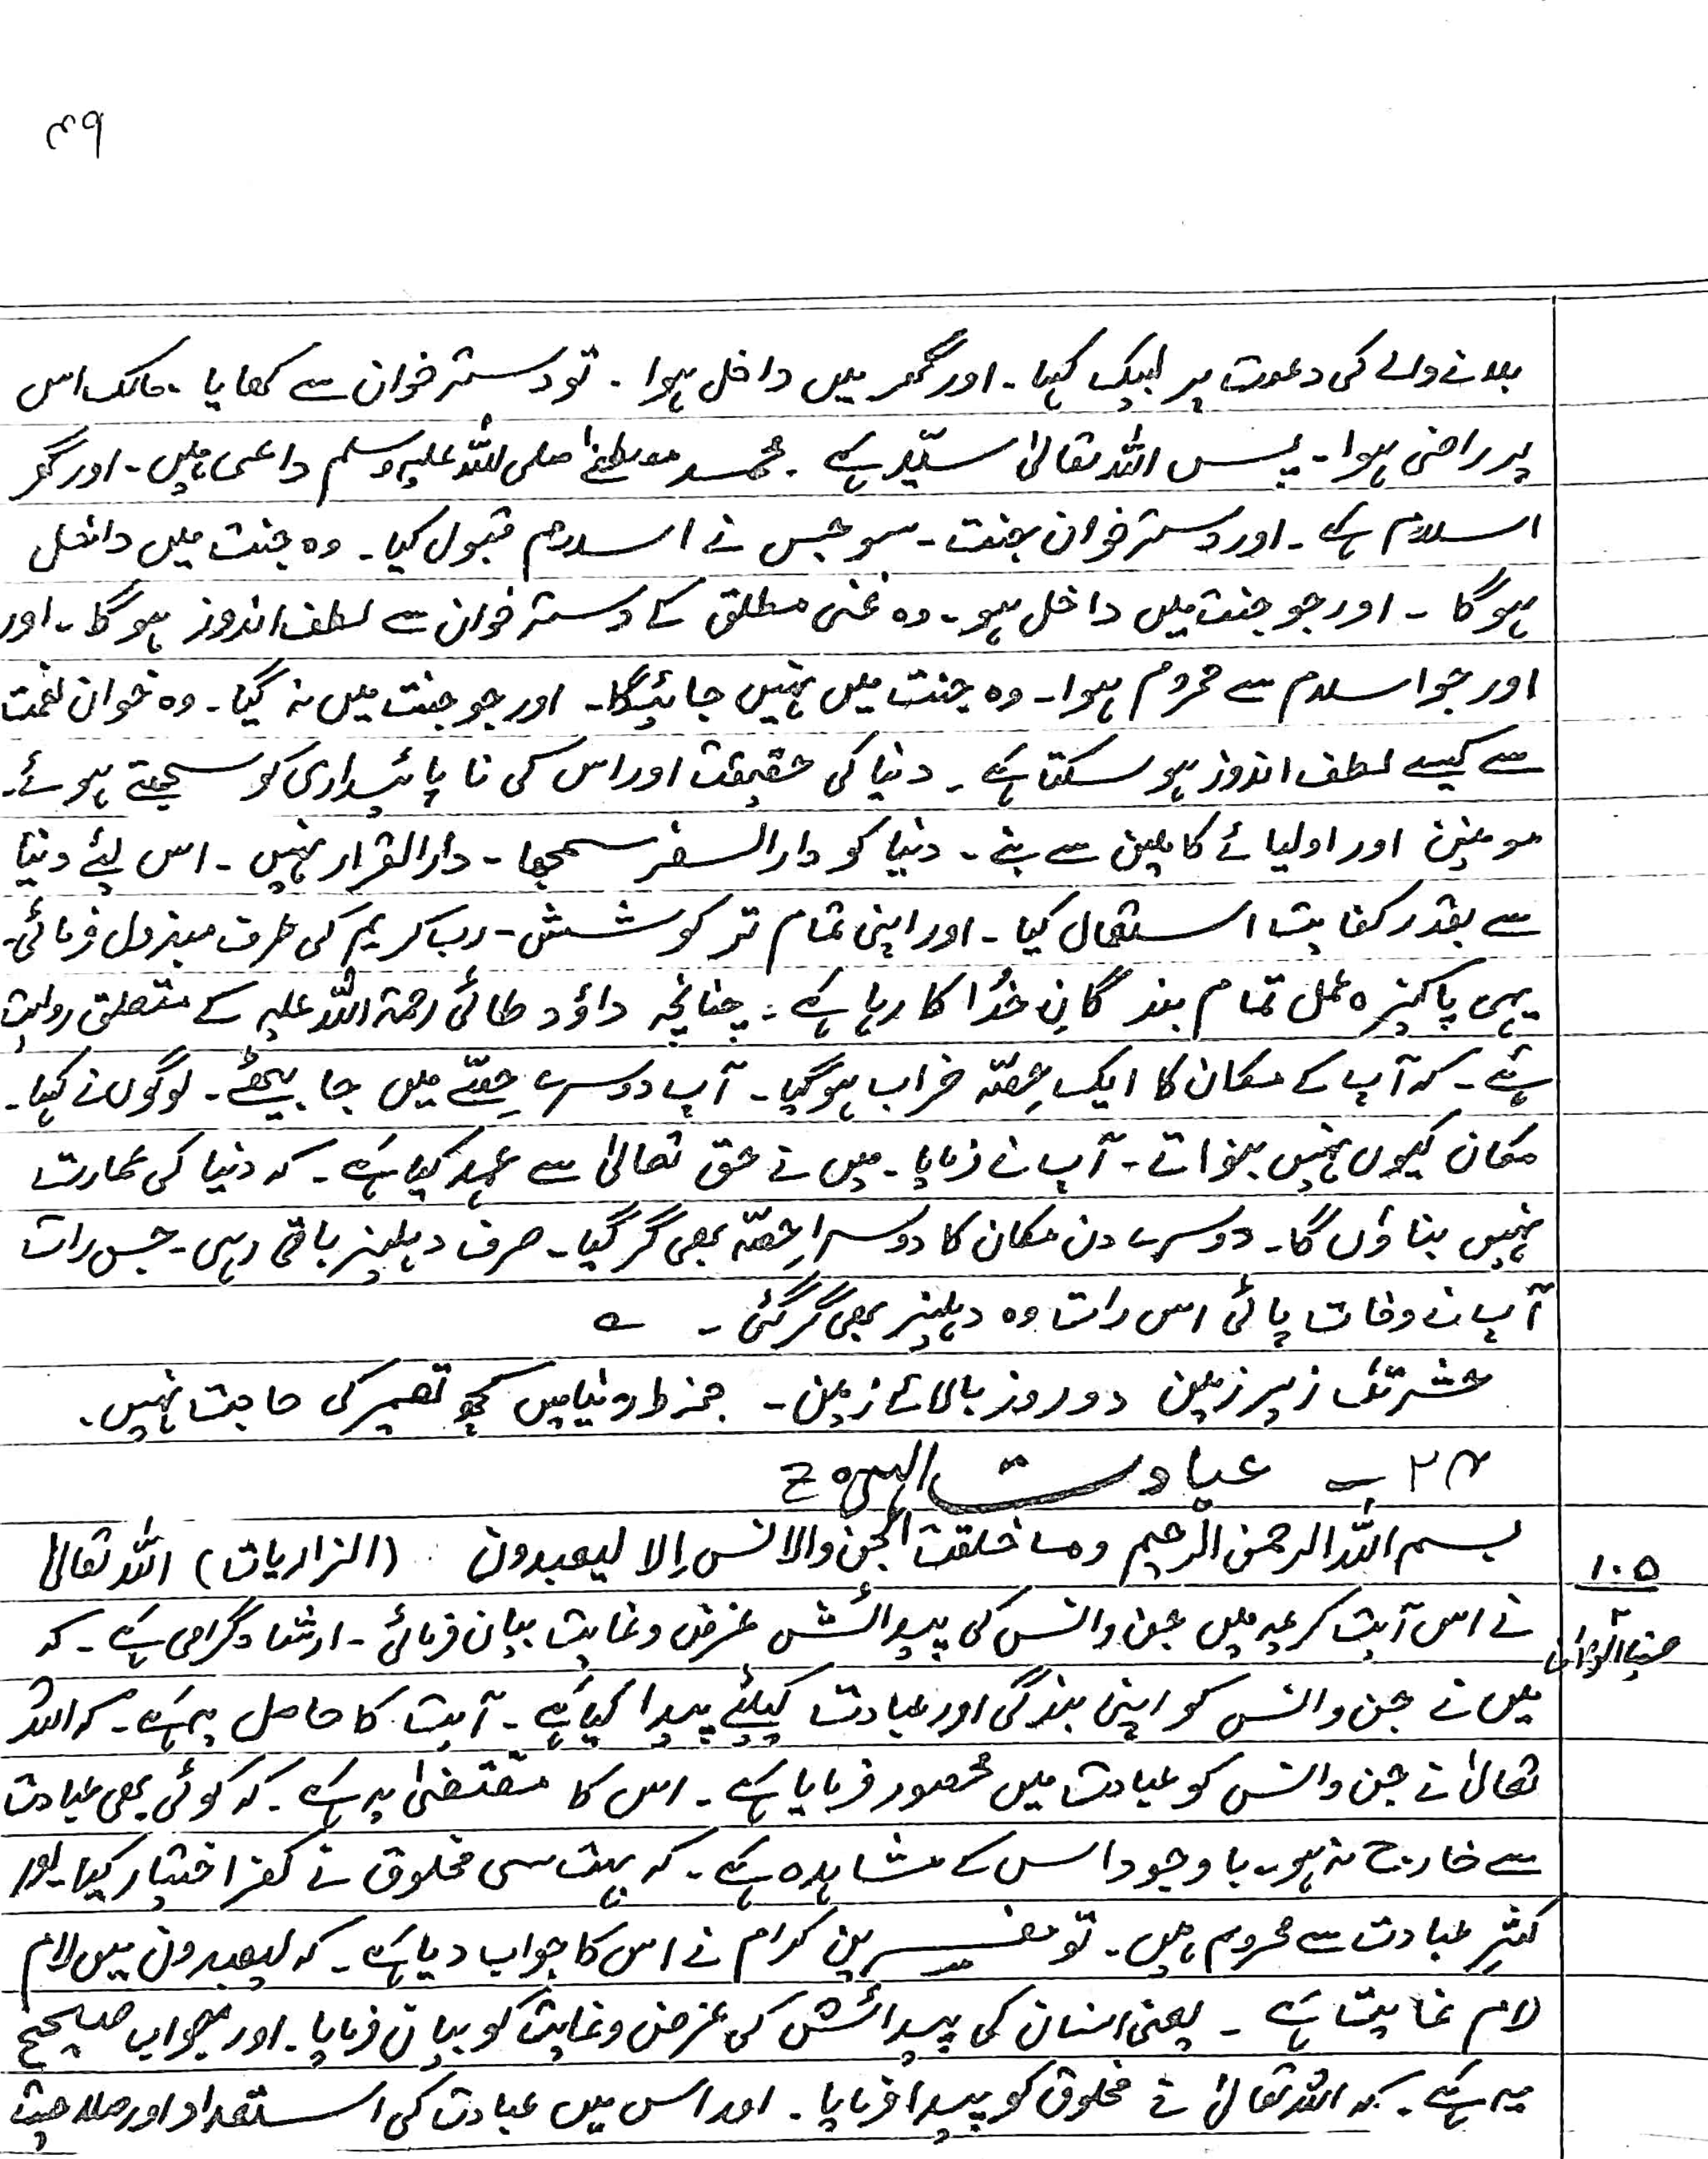 ۳۹
بلانے والے کی دعوت پر لبیک کہا۔ اور گھر میں داخل ہوا۔ تو دسترخوان سے کھایا۔ مالک اس
پر راضی ہوا۔ پس اللہ تعالیٰ سیّد ہے۔ محمد مصطفےٰ صلی اللہ علیہ وسلم داعی ہیں۔ اور گھر
اسلام ہے۔ اور دسترخوان جنت۔ سو جس نے اسلام قبول کیا۔ وہ جنت میں داخل
ہوگا ۔ اور جو جنت میں داخل ہو۔ وہ غنی مطلق کے دسترخوان سے لطف اندوز ہوگا۔ اور
اور جو اسلام سے محروم ہوا۔ وہ جنت میں نہیں جائیگا۔ اور جو جنت میں نہ گیا۔ وہ خوان نعمت
سے کیسے لطف اندوز ہو سکتا ہے۔ دنیا کی حقیقت اور اس کی ناپائیداری کو سمجھتے ہوئے۔
مومنین اور اولیائے کاملین سے بنے۔ دنیا کو دارالسفر سمجھا۔ دارالقرار نہیں۔ اس لئے دنیا
سے بقدر کفایت استعمال کیا۔ اور اپنی تمام تر کوشش۔ رب کریم کی طرف مبذول فرمائی۔
یہی پاکیزہ عمل تمام بندگانِ خدُا کا رہا ہے۔ چنانچہ داؤد طائی رحمۃ اللہ علیہ کے متعلق روایت
ہے۔ کہ آپ کے مکان کا ایک حِصّہ خراب ہوگیا۔ آپ دوسرے حِصّے میں جا بیٹھے۔ لوگوں نے کہا۔
مکان کیوں نہیں بنواتے۔ آپ نے فرمایا۔ میں نے حق تعالیٰ سے عہد کیا ہے۔ کہ دنیا کی عمارت
نہیں بناؤں گا۔ دوسرے دن مکان کا دوسرا حِصّہ بھی گر گیا۔ صرف دہلیز باقی رہی۔ جس رات
آپ نے وفات پائی اس رات وہ دہلیز بھی گر گئی ۔ ؎
حشر تک زیر زمین دو روز بالائے زمین۔ دنیا میں کچھ تعمیر کی حاجت نہیں۔
۲۴ ــ عبادت الہی
بسم اللہ الرحمن الرحیم وما خلقت الجن والانس اِلا لیعبدون (الزاریات) اللہ تعالیٰ
۱۰۵
نے اس آیت کریمہ میں جن و انس کی پیدائش غرض و غایت بیان فرمائی۔ ارشاد گرامی ہے۔ کہ
میں نے جن و انس کو اپنی بندگی اور عبادت کیلئے پیدا کیا ہے۔ آیت کا حاصل یہ ہے۔ کہ اللہ
تعالیٰ نے جن و انس کو عبادت میں محصور فرمایا ہے۔ اس کا مقتضیٰ یہ ہے۔ کہ کوئی بھی عبادت
سے خارج نہ ہو۔ باوجود اس کے مشاہدہ ہے۔ کہ بہت سی مخلوق نے کفر اختیار کیا۔ اور
کثِیر عبادت سے محروم ہیں۔ تو مفسرین کرام نے اس کا جواب دیا ہے۔ کہ لیعبدون میں لام
لام غایت ہے ۔ یعنی انسان کی پیدائش کی غرض و غایت کو بیان فرمایا۔ اور جواب صحیح
یہ ہے۔ کہ اللہ تعالیٰ نے مخلوق کو پیدا فرمایا۔ اور اس میں عبادت کی استعداد اور صلاحیت